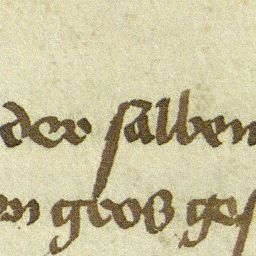 der salben
en gros ges